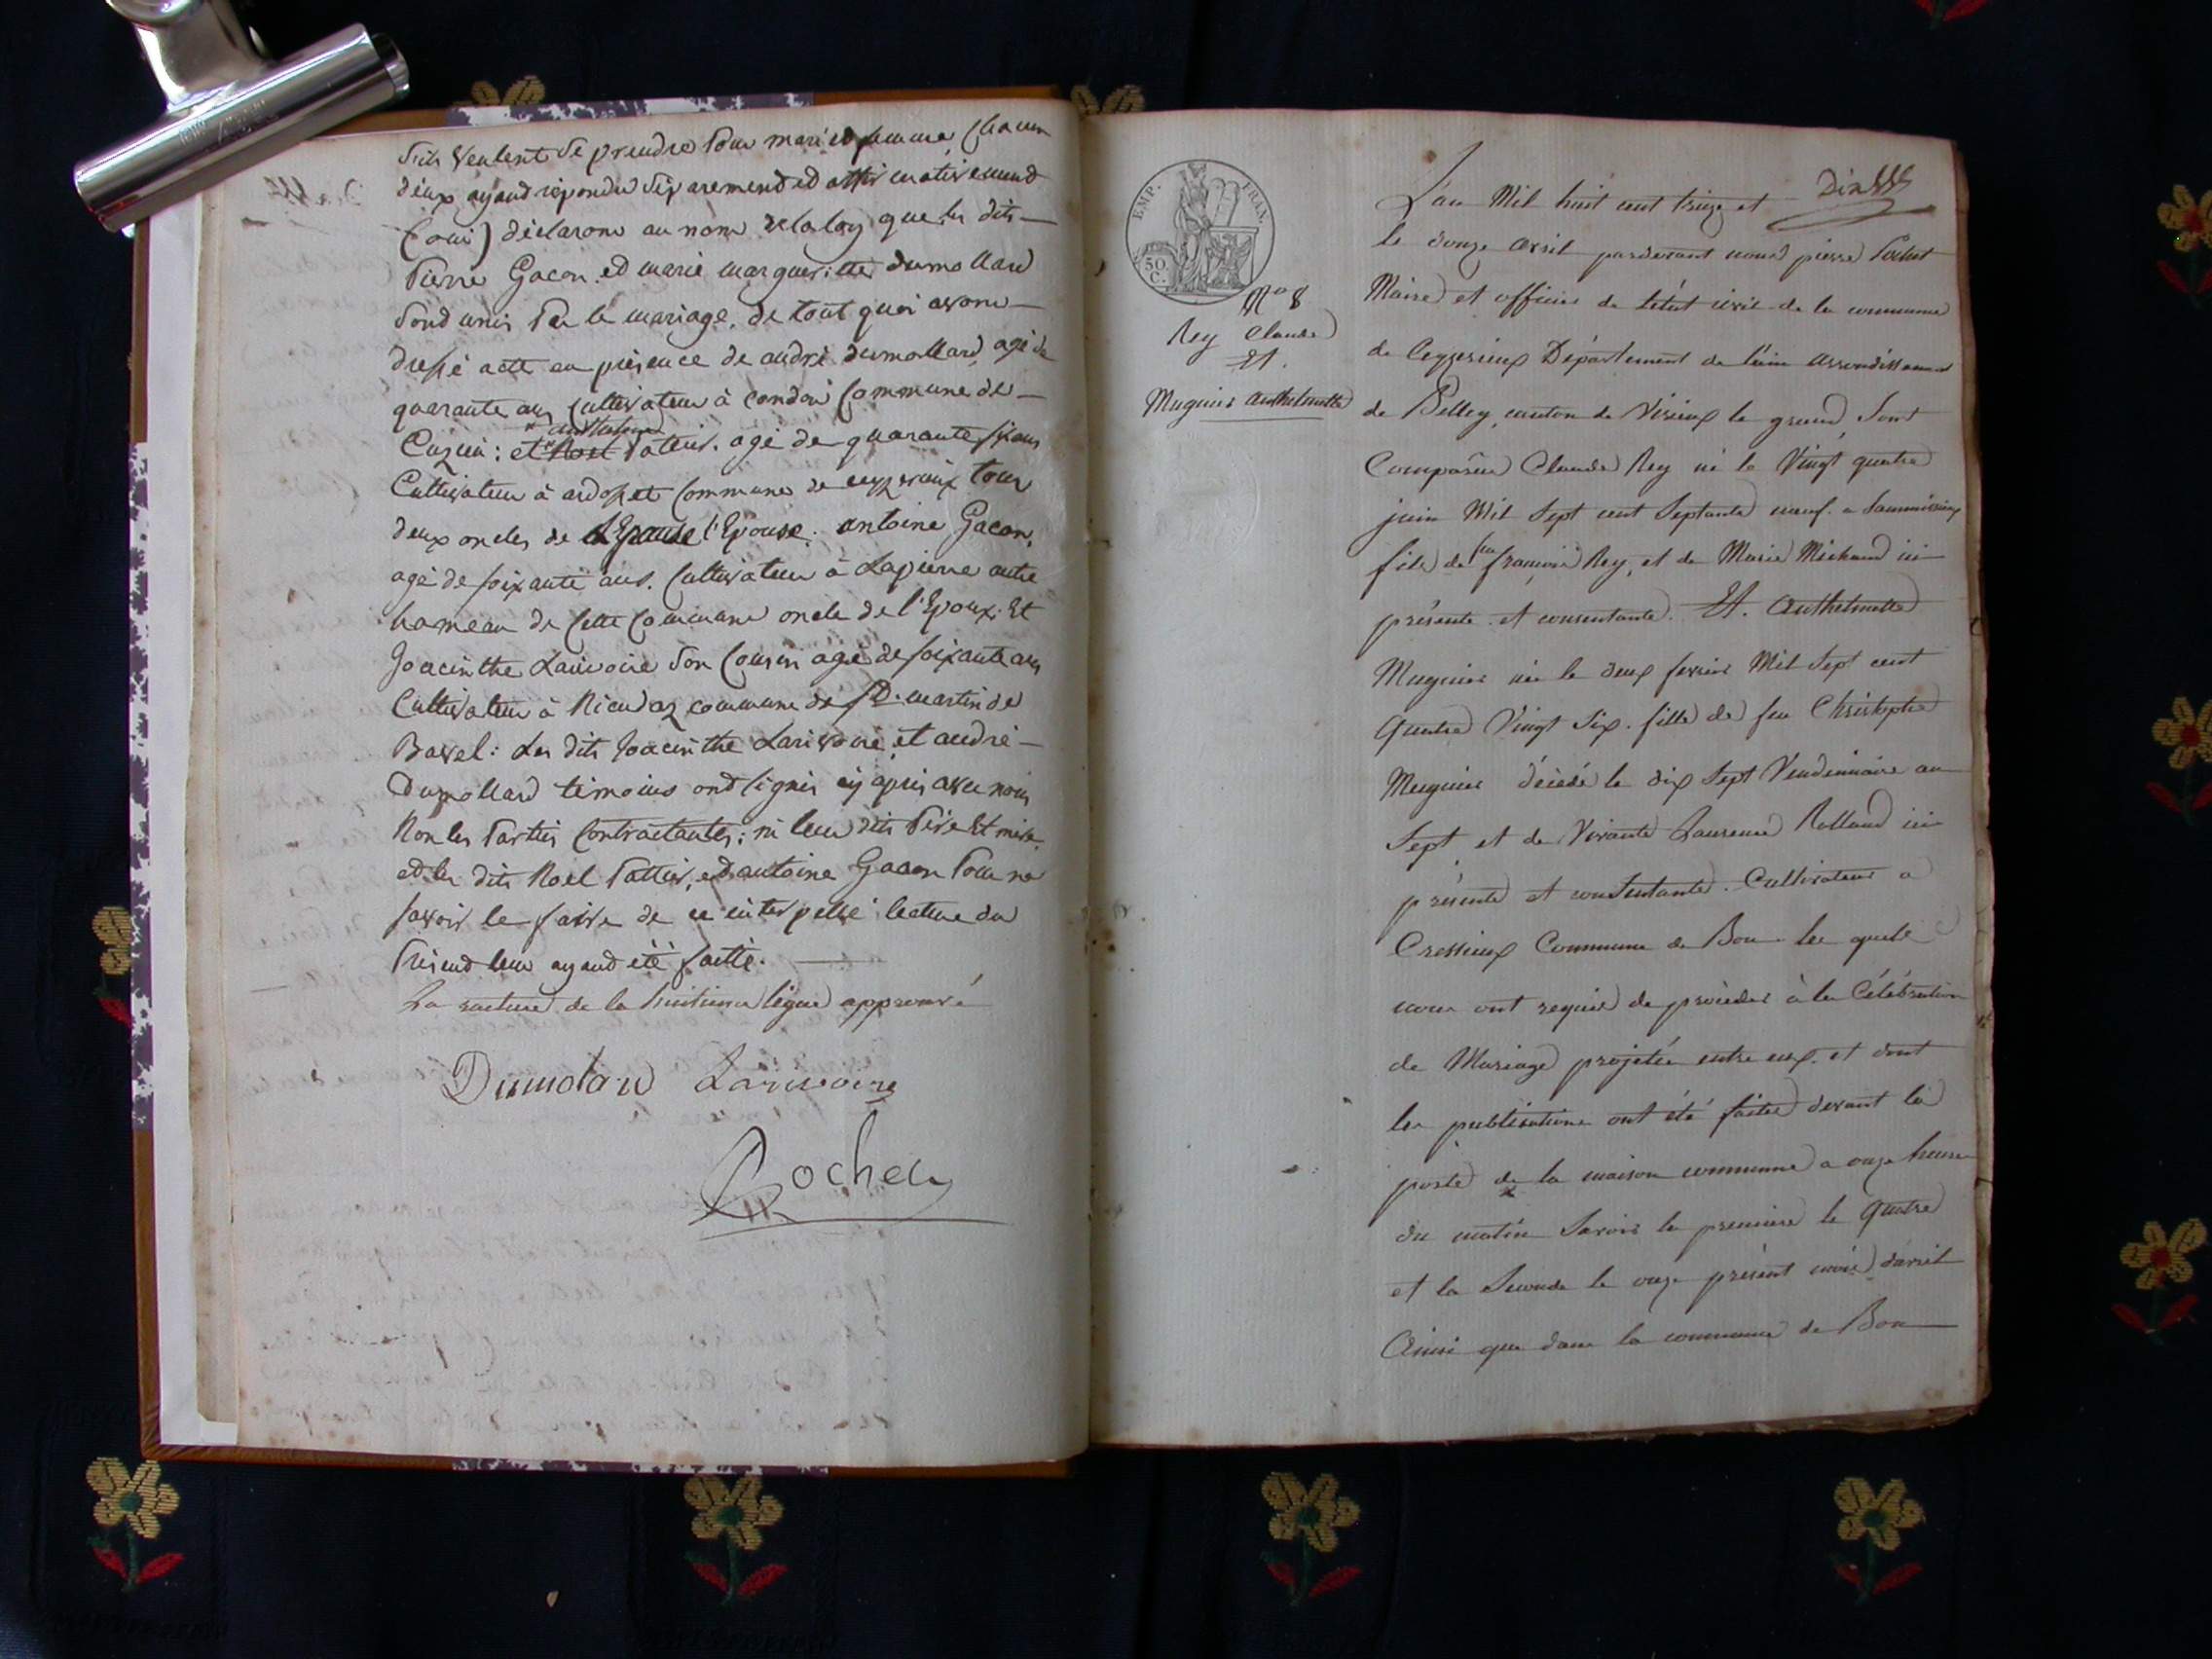 s'ils veulent se prendre pour mari et femme, chacun
d'eux ayand repondu séparemend ed affirmativemend
(oui) déclarons au nom de la loy que les dits
Pierre Gacon ed marie margueritte dumollard
sond unis Par le mariage, de tout quoi avons
dressé acte en présence de andré dumollard, agé de
quarante ans cultivateur à condon commune de
Cuzieu: et Noel agé de quarante six ans
Cultivateur à ardosset commune de ceyzerieux tous
deux oncles de l'Epouse. antoine Gacon,
agé de soixante ans. Cultivateur à Lapierre autre
hameau de cette commune oncle de l'Epoux. Et
Joacinthe Larivoire son Cousin agé de soixante ans
Cultivateur à commune de St. martin de
Bavel: Les dits Joacinthe Larivoire et andré
Dumollard témoins ond signés cy après avec nous
Non les Parties Contractantes; ni leur dits Père Et mère
ed les dits Noel Pattier, ed antoine Gacon Pour ne
savoir le faire de ce interpellé lecture du
Présend leur ayand été faitte.
La rature de la huitieme ligne approuvé
Dumolard Larivoire
Rochet
EMP. FRAN.
50. C.
No 8
Rey Claude
Et.
Muguier Anthelmette
Dix
L'an Mil huit cent treize et
le douze avril pardevant nous pierre Pochet
Maire et officier de l'état civil de la commune
de Ceyzerieux Département de l'ain arrondissement
de Belley, canton de Virieux le grand, Sont
Comparus Claude Rey né le Vingt quatre
juin Mil Sept cent Septante neuf. a
fils de feu françois Rey, et de Marie Michaud ici
présente et consentante. Et. Anthelmette
Muguier née le deux fevrier Mil Sept cent
Quatre Vingt Six. fille de feu Christophe
Muguier décédé le dix Sept Vendemiaire an
Sept et de Vivante Laurence Rolland ici
présente et consentante. Cultivateurs a
Cressieux Commune de Bon les quels
nous ont requis de procéder à la Célébration
de Mariage projetée entre eux. et dont
les publications ont été faites devant la
porte de la maison commune a onze heures
du matin Savoir la premiere le quatre
et la Seconde le onze présent mois d'avril
Ainsi que dans la commune de Bon